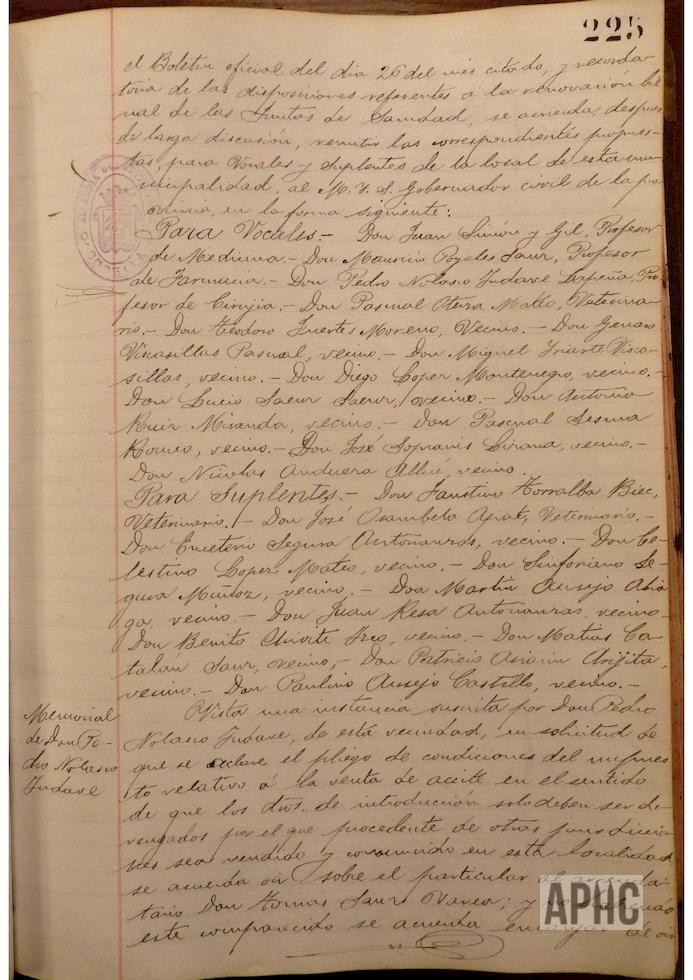 225
el Boletin oficial del dia 26 del mes citado, y recorda-
toria de las disposiciones referentes á la renovación bie-
nal de las Juntas de Sanidad, se acuerda, despues
de larga discusión, remitir las correspondientes propues-
tas, para Vocales y Suplentes de la local de esta mu-
nicipalidad, al M. Y. S. Gobernador civil de la pro-
vincia, en la forma siguiente:
Para Vocales.- Don Juan Simón y Gil, Profesor
de Medicina.- Don Mauricio Poyales Saenz, Profesor
de Farmacia.- Don Pedro Nolasco Yudave Lapeña, Pro-
fesor de Cirujia.- Don Pascual Mateo, Veterina-
rio.- Don Teodoro Fuertes Moreno, Vecino.- Don Genaro
Viscasillas Pascual, vecino.- Don Miguel Yriarte Visca-
sillas, vecino.- Don Diego Lopez Montenegro, vecino.-
Don Lucio Saenz Saenz, vecino.- Don Antonio
Ruiz Miranda, vecino.- Don Pascual Sesma
Romeo, vecino.- Don José Sopranis vecino.-
Don Nicolas Anduera Allué, vecino.
Para Suplentes.- Don Faustino Torralba Biec,
Veterinario.- Don José Osambela Veterinario.-
Don Emeterio Segura Antoñanzas, vecino.- Don Ce-
lestino Lopez Mateo, vecino.- Don Sinforiano Se-
gura Muñoz, vecino.- Don Martin Ausejo
vecino.- Don Juan Resa Antoñanzas, vecino
Don Benito vecino.- Don Matias Ca-
talán Saenz, vecino,- Don Patricio Asiain Arijita,
vecino.- Don Paulino Ausejo Castillo, vecino.-
Memorial
de Don Pe-
dro Nolasco
Yudave
Vista una instancia suscrita por Don Pedro
Nolasco Yudave, de esta vecindad, en solicitud de
que se aclare el pliego de condiciones del impues-
to relativo á la venta de aceite en el sentido
de que los dros. de introducción solo deben ser de-
vengados por el que procedente de otras jurisdiccio-
nes sea vendido y consumido en esta localidad
se acuerda oir sobre el particular al arrenda-
tario Don Tomas Saenz Varea; y
este comparecido se acuerda
APHC